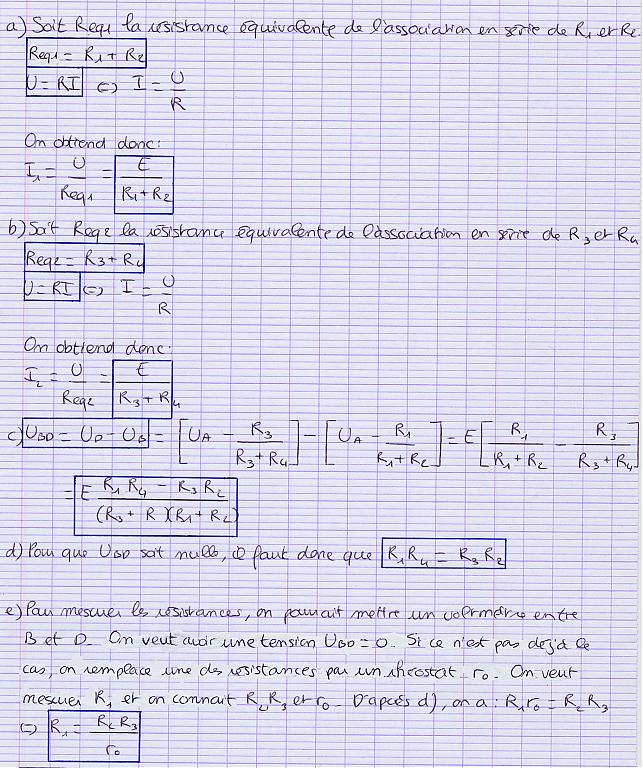 a) Soit Req1 la résistance équivalente de l'association en série de R1 et R2.
Req1 = R1 + R2
U = RI <=> I = U/R
On obtiend donc:
I1 = U/Req1 = E/(R1 + R2)
b) Soit Req2 la résistance équivalente de l'association en série de R3 et R4
Req2 = R3 + R4
U = RI <=> I = U/R
On obtiend donc:
I2 = U/Req2 = E/(R3 + R4)
c) UBD = UD - UB = [UA - R3/(R3 + R4)] - [UA - R1/(R1 + R2)] = E[R1/(R1 + R2) - R3/(R3 + R4)]
= E (R1 R4 - R3 R2)/((R3 + R )(R1 + R2)
d) Pour que UBD soit nulle, il faut donc que R1 R4 = R3 R2
e) Pour mesurer les résistances, on pourrait mettre un voltmètre entre
B et D. On veut avoir une tension UBD = 0. Si ce n'est pas dejà le
cas, on remplace une des resistances par un rheostat r0. On veut
mesurer R1 et on connait R2 R3 et r0. D'après d), on a : R1 r0 = R2 R3
<=> R1 = R2 R3/r0